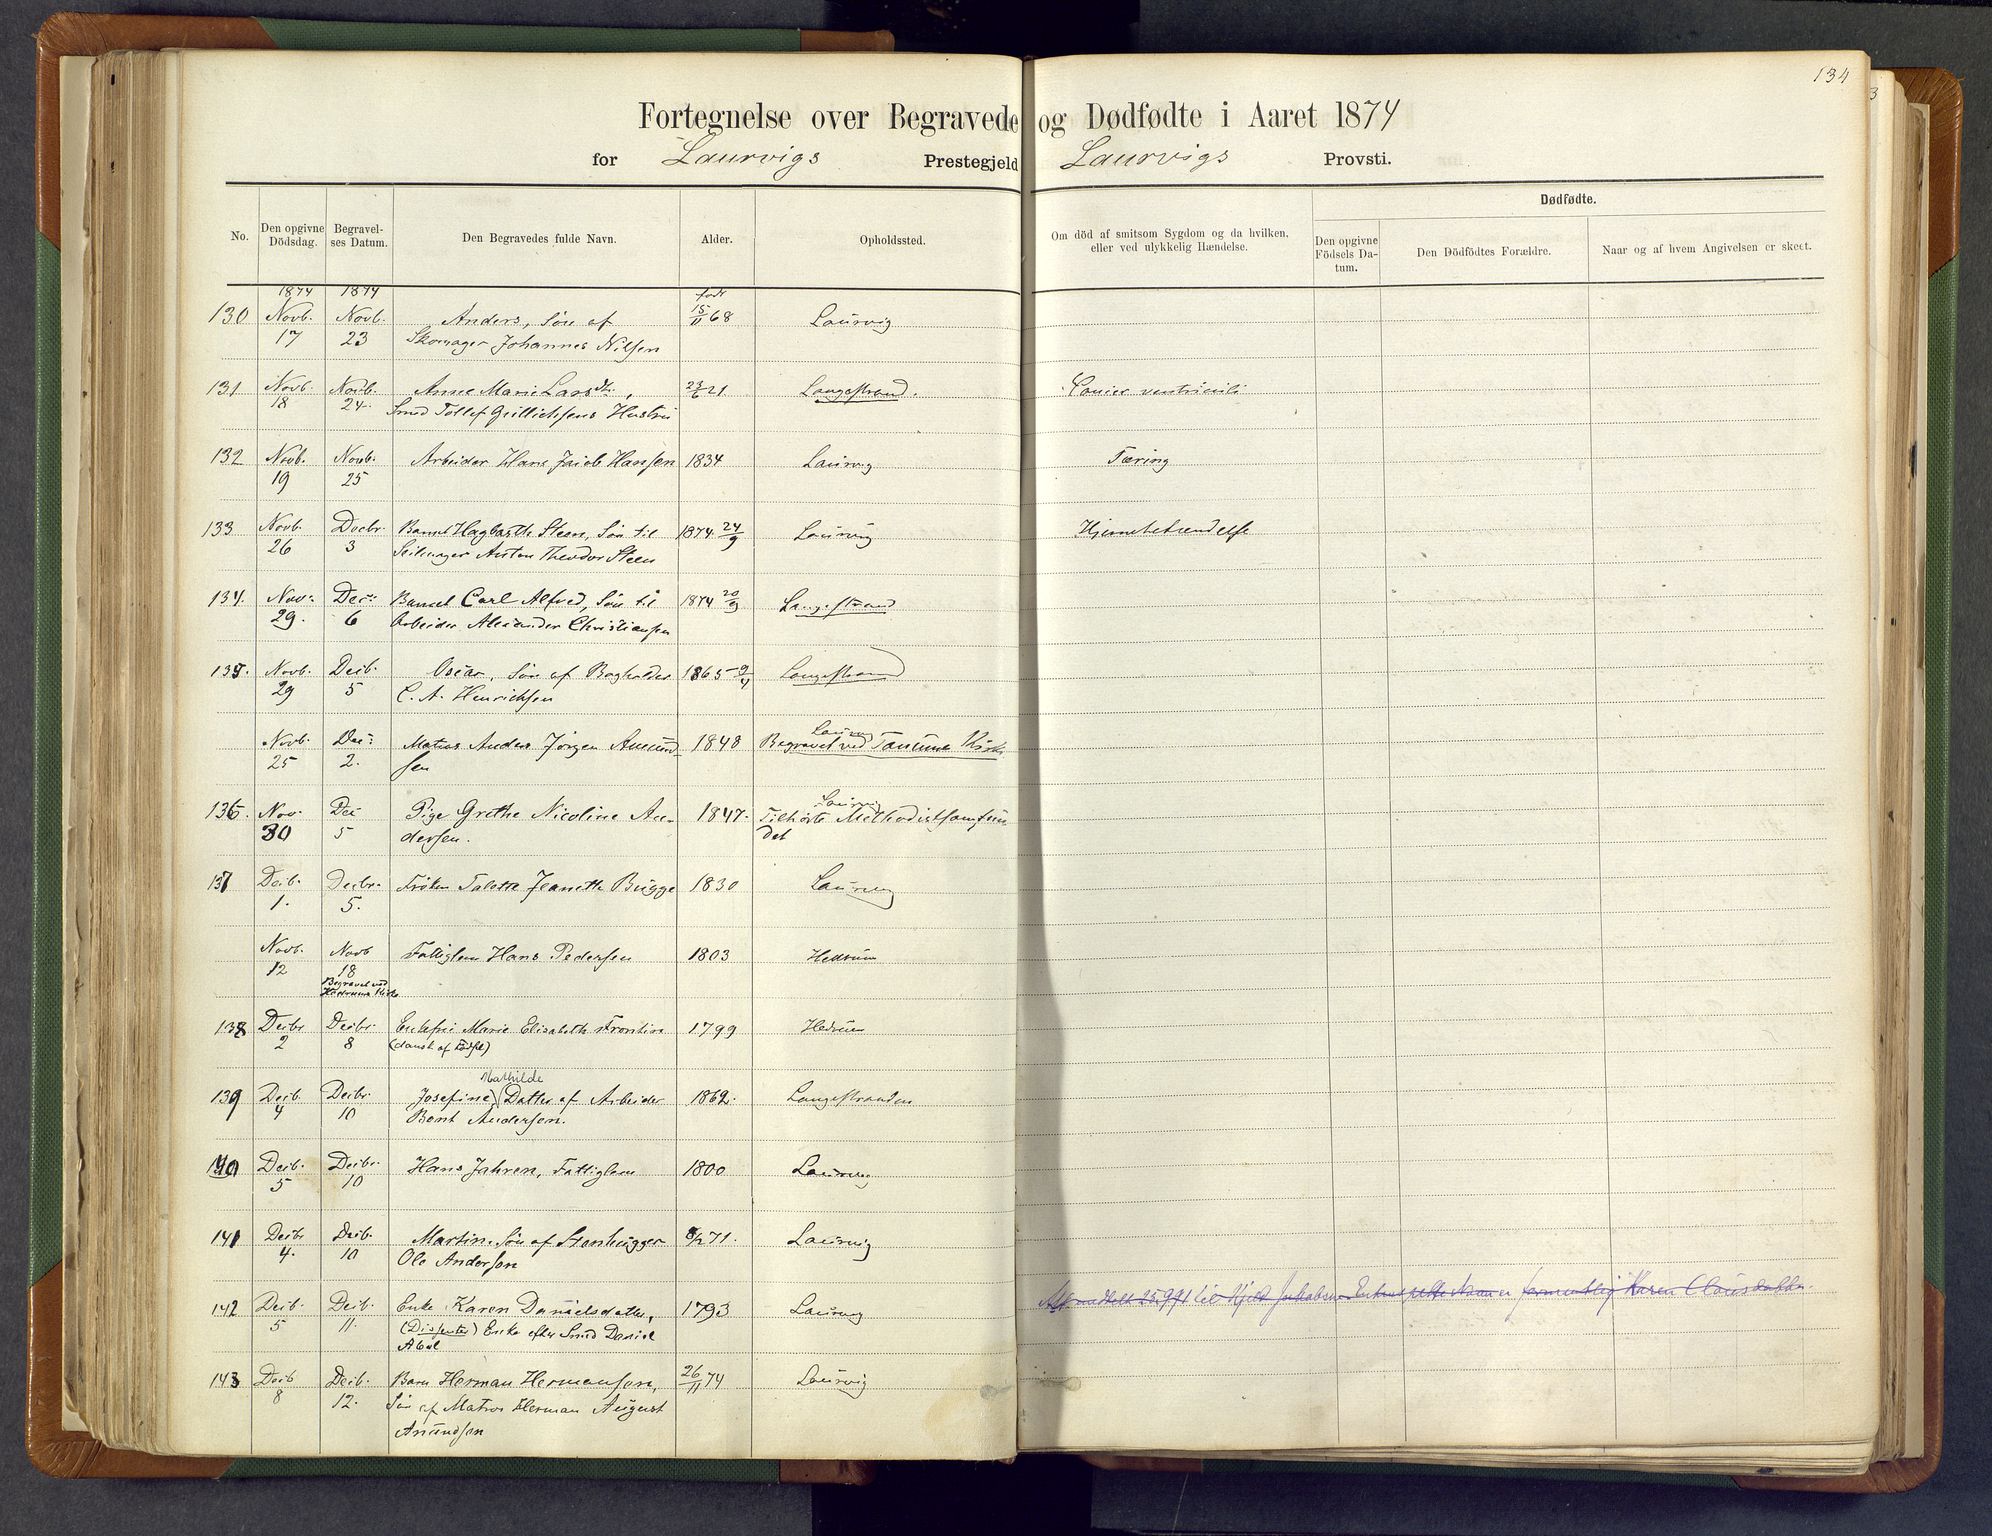 134
3
Fortegnelse over Begravede og Dødfødte i Aaret 1874
for Laurvigs Prestegjeld Laurvigs Provsti.
No. Den opgivne Dödsdag. Begravel-ses Datum. Den Begravedes fulde Navn. Alder. Opholdssted. Om död af smitsom Sygdom og da hvilken, eller ved ulykkelig Hændelse. Dødfødte.
Den opgivne Födsels Da-tum. Den Dödfödtes Forældre. Naar og af hvem Angivelsen er skeet.
1874 1874 født
130 Novb. Novb. Anders, Søn af 15/11 68 Laurvig
17 23 Skomager Johannes Nilsen
131 Novb. Novb. Anne Marie Larsdtr., 23/6 21 Langestrand. Cancer ventriculi
18 24 Smed Tollef Hustru
132 Novb. Novb. Arbeider Hans Jacob Hansen 1834 Laurvig Tæring
19 25
133 Novb. Decbr. Barnet Hagbarth Steen, Søn til 1874 24/9 Laurvig Hjernebetændelse
26 3 Seilmager Anton Theodor Steen
134. Nov. Dec. Barnet Carl Alfred, Søn til 1874 20/9 Langestrand
29. 6 Arbeider Alexander Christiansen
135. Novb. Decb. Oscar, Søn af Bogholder 1865 9/4 Langestrand
29 5 C. A. Henrichsen
Novb. Dec. Matros Anders Jörgen Amund- 1848 Laurvig
Begravet ved Tanum Kirke
25 2. sen
136. Nov. Dec Pige Grethe Nicoline An- 1847. Laurvig
Tilhørte Methodistsamfun
30 5 dersen. det
137 Decb. Decbr. Frøken Jeanette Bugge 1830 Laurvig
1. 5.
Novb. Novb Fattiglem Hans Pedersen 1803 Hedrum
12 18
Begravet ved
Hedrums Kirke
138 Decbr Decbr. Enkefru Marie Elisabeth Frontin 1799 Hedrum
2 8 (dansk af Fødsel)
Mathilde
139 Decb. Decbr. Josefine, Datter af Arbeider 1862. Langestranden
4 10 Bent Andersen.
140 Decb. Decbr. Hans Jahren, Fattiglem 1800 Laurvig
5 10
141 Decbr Decb. Martin, Søn af Stenhugger 8/2 71. Laurvig
4. 10 Ole Andersen
142 Decb. Decb. Enke Karen Danielsdatter, 1793 Laurvig Karen Clausdatter
5 11. (Dissenter) Enke efter Smed Daniel
Abel
143 Decb Decb. Barn Herman Hermansen, 26/11 74 Laurvig
8 12. Søn af Matros Herman August
Amundsen